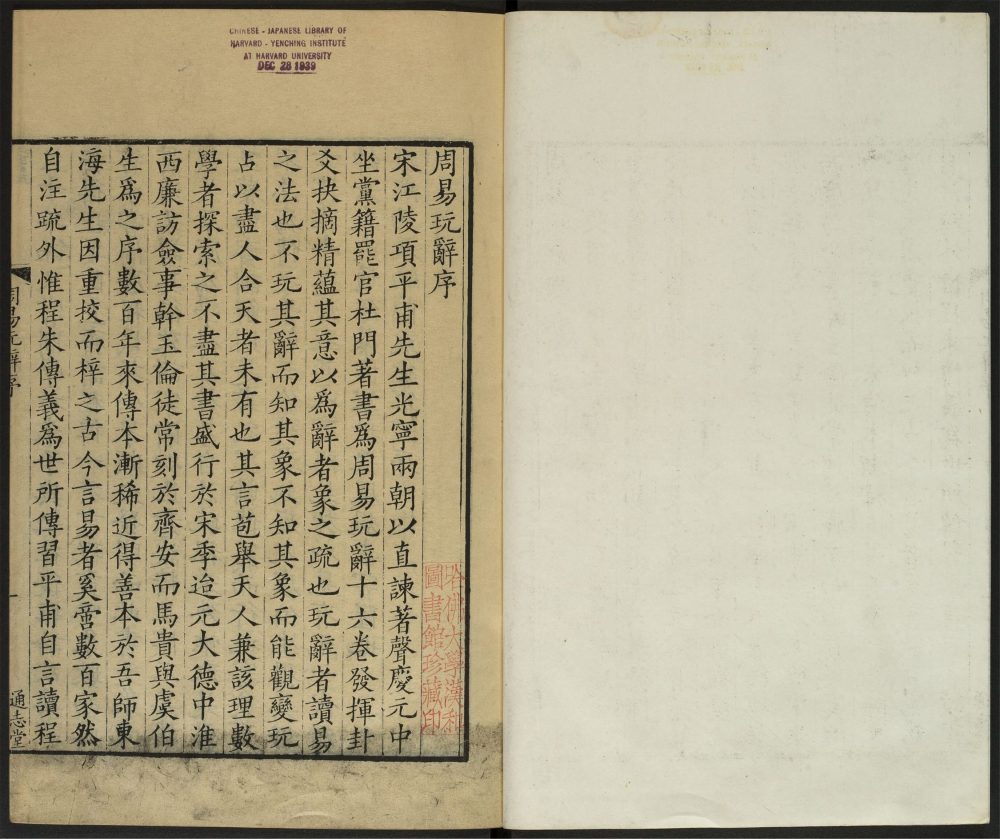 CHINESE - JAPANESE LIBRARY OF
HARVARD - YENCHING INSTITUTE
AT HARVARD UNIVERSITY
DEC 28 1939
周易玩辭序
宋江陵項平甫先生光寧兩朝以直諫著聲慶元中
坐黨籍罷官杜門著書爲周易玩辭十六卷發揮卦
爻抉摘精蘊其意以爲辭者象之疏也玩辭者讀易
之法也不玩其辭而知其象不知其象而能觀變玩
占以盡人合天者未有也其言苞舉天人兼該理數
學者探索之不盡其書盛行於宋季迨元大德中淮
西廉訪僉事斡玉倫徒常刻於齊安而馬貴與虞伯
生爲之序數百年來傳本漸稀近得善本於吾師東
海先生因重挍而梓之古今言易者奚啻數百家然
自注疏外惟程朱傳義爲世所傳習平甫自言讀程
哈佛大學漢和
圖書館珍藏印
周易玩辭序
一
通志堂